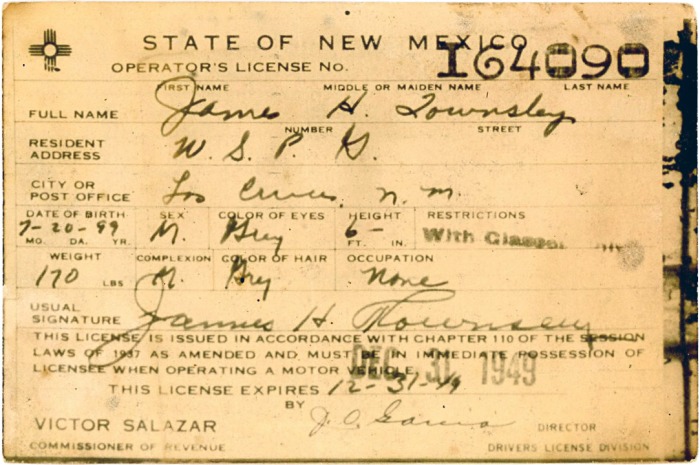 STATE OF NEW MEXICO
OPERATOR'S LICENSE NO. I64090
FIRST NAME MIDDLE OR MAIDEN NAME LAST NAME
FULL NAME James H. Townsley
NUMBER STREET
RESIDENT ADDRESS W S P G.
CITY OR POST OFFICE Los Cruces, N. M.
DATE OF BIRTH SEX COLOR OF EYES HEIGHT RESTRICTIONS
7-20-99 M. Grey 6- With Glasses
MO. DA. YR. FT. IN.
WEIGHT COMPLEXION COLOR OF HAIR OCCUPATION
170 LBS M. Gry None
USUAL SIGNATURE James H Townsley
THIS LICENSE IS ISSUED IN ACCORDANCE WITH CHAPTER 110 OF THE SESSION
LAWS OF 1937 AS AMENDED AND MUST BE IN IMMEDIATE POSSESSION OF
LICENSEE WHEN OPERATING A MOTOR VEHICLE.
DEC 31 1949
THIS LICENSE EXPIRES 12-31-49
BY J. O. Garcia DIRECTOR
VICTOR SALAZAR
COMMISSIONER OF REVENUE DRIVERS LICENSE DIVISION